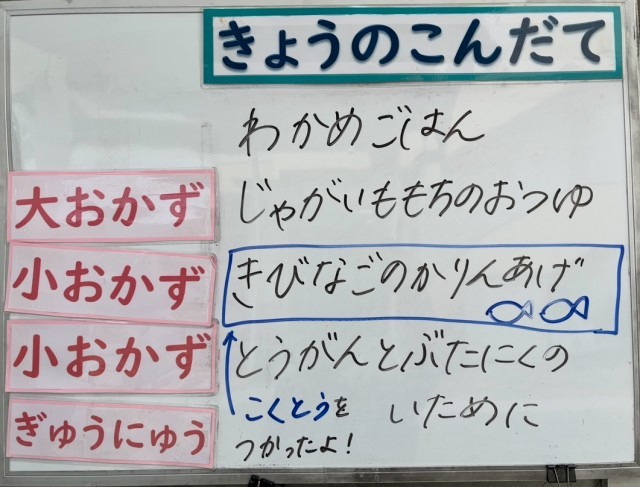 きょうのこんだて
わかめごはん
大おかず
じゃがいももちのおつゆ
小おかず
きびなごのかりんあげ
小おかず
とうがんとぶたにくの
いために
ぎゅうにゅう
こくとうを
つかったよ!